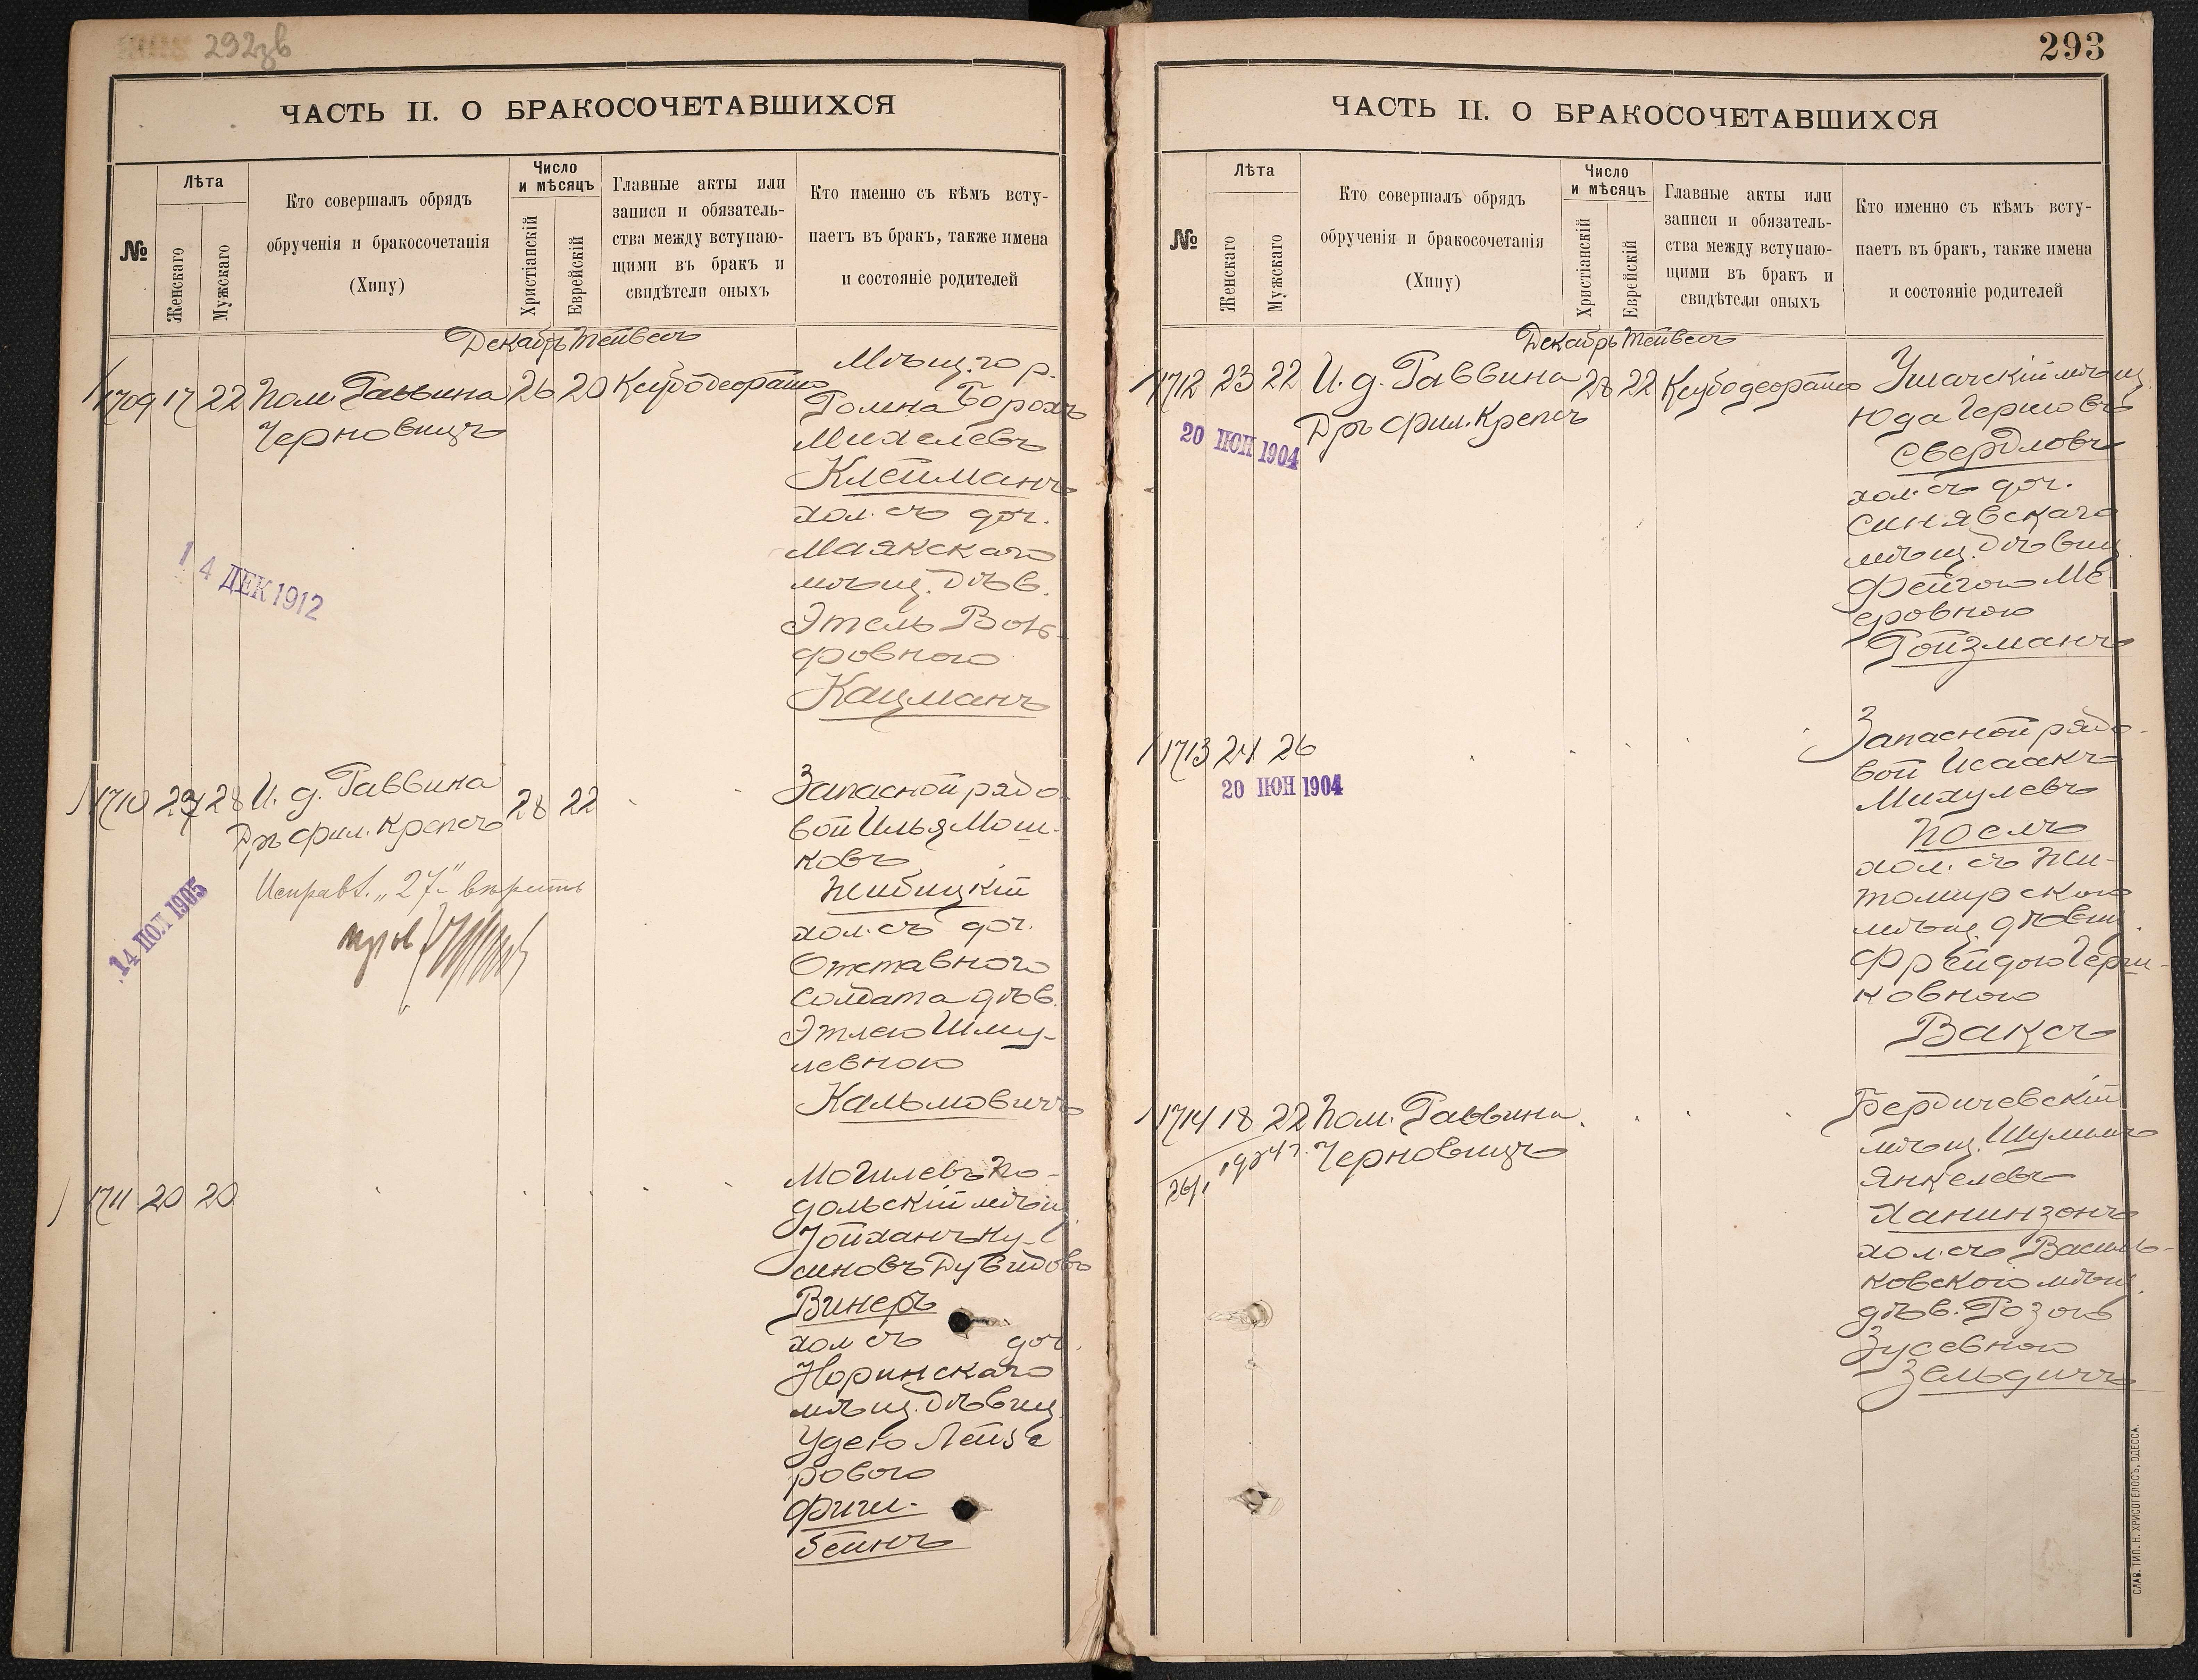 292зв
ЧАСТЬ II. О БРАКОСОЧЕТАВШИХСЯ
№
Лѣта
Женскаго
Мужскаго
Кто совершалъ обрядъ
обрученія и бракосочетанія
(Хипу)
Число
и мѣсяцъ
Христіанскій
Еврейскій
Главные акты или
записи и обязатель-
ства между вступаю-
щими въ бракъ и
свидѣтели оныхъ
Кто именно съ кѣмъ всту-
паетъ въ бракъ, также имена
и состояніе родителей
Декабрь Тейвесъ
1709 17 22 Пом. Раввина 26 20
Черновицъ
Мѣщ. гор.
Борохъ
Михелевъ
Клейманъ
хол. съ доч.
Маякскаго
мѣщ. дѣв.
Этель Воль-
фовною
Кацманъ
14 ДЕК 1912
1710 28 И. д. Раввина 28 22
Дръ фил. Крепсъ
Исправл. "27" вѣрить
14 ИОЛ 1905
Запасной рядо-
вой Илья Мош-
ковъ
Жибицкій
хол. съ доч.
Отставного
солдата дѣв.
Этлею Шму-
левною
Кальмовичъ
1711 20 20
Могилевъ По-
дольскій мѣщ.
Дувидовъ
Винеръ
хол съ доч.
Норинскаго
мѣщ. дѣвиц.
Удею Лейзе
ровою
Фиш-
бейнъ
293
ЧАСТЬ II. О БРАКОСОЧЕТАВШИХСЯ
№
Лѣта
Женскаго
Мужскаго
Кто совершалъ обрядъ
обрученія и бракосочетанія
(Хипу)
Число
и мѣсяцъ
Христіанскій
Еврейскій
Главные акты или
записи и обязатель-
ства между вступаю-
щими въ бракъ и
свидѣтели оныхъ
Кто именно съ кѣмъ всту-
паетъ въ бракъ, также имена
и состояніе родителей
Декабрь Тейвесъ
1712 23 22 И. д. Раввина 28 22
Дръ фил. Крепсъ
20 ИЮН 1904
Ушачскій мѣщ.
Юда Гершовъ
Свердловъ
хол. съ доч.
Синявскаго
мѣщ. дѣвиц.
Фейгою Ме
еровною
Ройзманъ
1713 24 26
20 ИЮН 1904
Запасной рядо-
вой Исаакъ
Михулевъ
Посель
хол. съ Жи-
томирскою
мѣщ. дѣвиц.
Фрейдою Герш-
ковною
Ваксъ
1714 18 22 Пом. Раввина
Черновицъ
Бердичевскій
мѣщ. Шулимъ
Янкелевъ
Ханинзонъ
хол. съ Василь-
ковскою мѣщ.
дѣв. Розою
Зусевною
Зельдичъ
СЛАВ. ТИП. Н. ХРИСОГЕЛОСЪ, ОДЕССА.